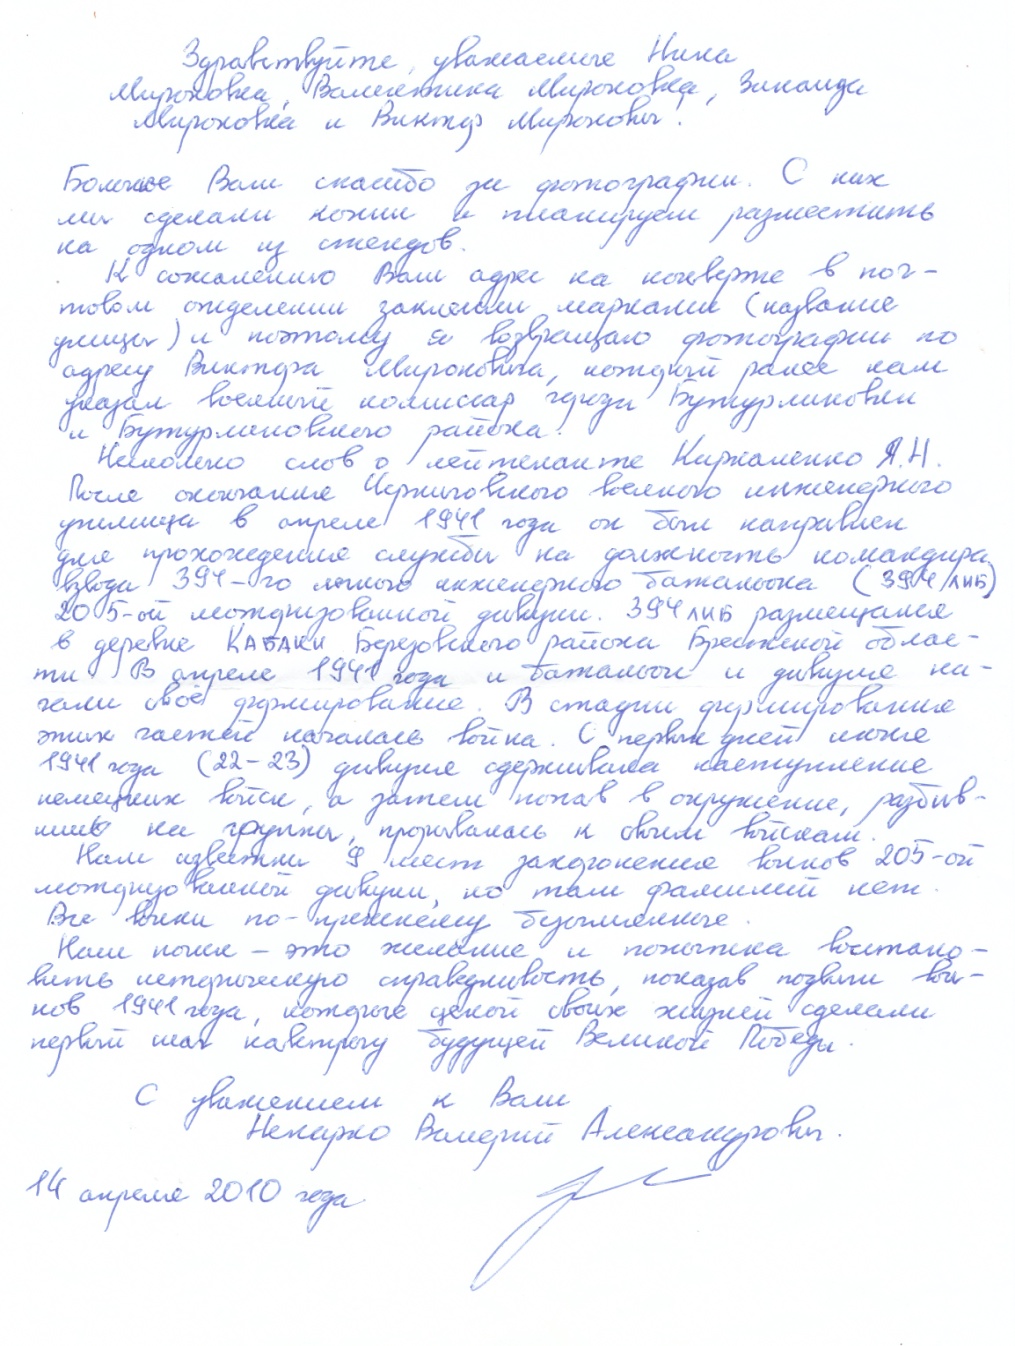 Здравствуйте, уважаемые Нина
Мироновна, Валентина Мироновна, Зинаида
Мироновна и Виктор Миронович.
Большое Вам спасибо за фотографии. С них
мы сделали копии и планируем разместить
на одном из стендов.
К сожалению Ваш адрес на конверте в поч-
товом отделении заклеили марками (название
улицы) и поэтому я возвращаю фотографии по
адресу Виктора Мироновича, который ранее нам
указал военный комиссар города Бутурлиновки
и Бутурлиновского района.
Несколько слов о лейтенанте Киркаленко А.Н.
После окончания Черниговского военного инженерного
училища в апреле 1941 года он был направлен
для прохождения службы на должность командира
взвода 394-го легкого инженерного батальона (394 либ)
205-ой моторизованной дивизии. 394 ЛИБ размещался
в деревне КАБАКИ Березовского района Брестской облас-
ти. В апреле 1941 года и батальон и дивизия на-
чали своё формирование. В стадии формирования
этих частей началась война. С первых дней июня
1941 года (22-23) дивизия сдерживала наступление
немецких войск, а затем попав в окружение, разбив-
шись на группы, прорывалась к своим войскам.
Нам известны 9 мест захоронения воинов 205-ой
моторизованной дивизии, но там фамилий нет.
Все воины по-прежнему безымянные.
Наш поиск – это желание и попытка восстано-
вить историческую справедливость, показав подвиги вои-
нов 1941 года, которые ценой своих жизней сделали
первый шаг навстречу будущей Великой Победы.
С уважением к Вам
Некарко Валерий Александрович.
14 апреля 2010 года